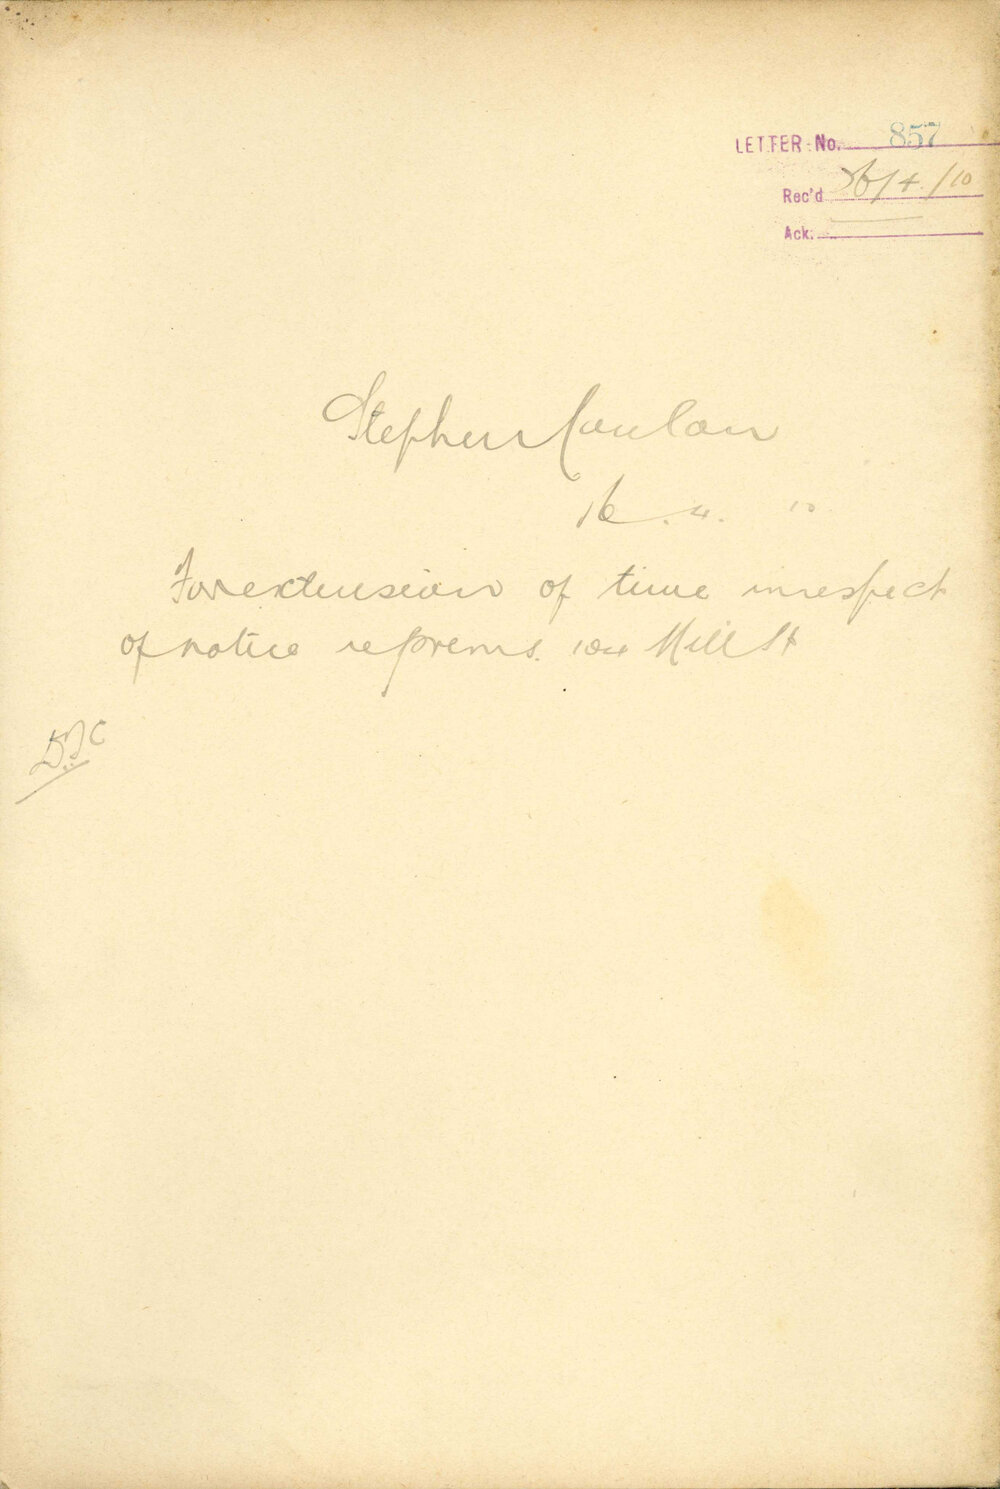 LETTER No. 857
Rec'd 26/4/10
Ack.
Stephen Conlan
16. 4. 10
For extension of time in respect
of notice re prems. 104 Mill St